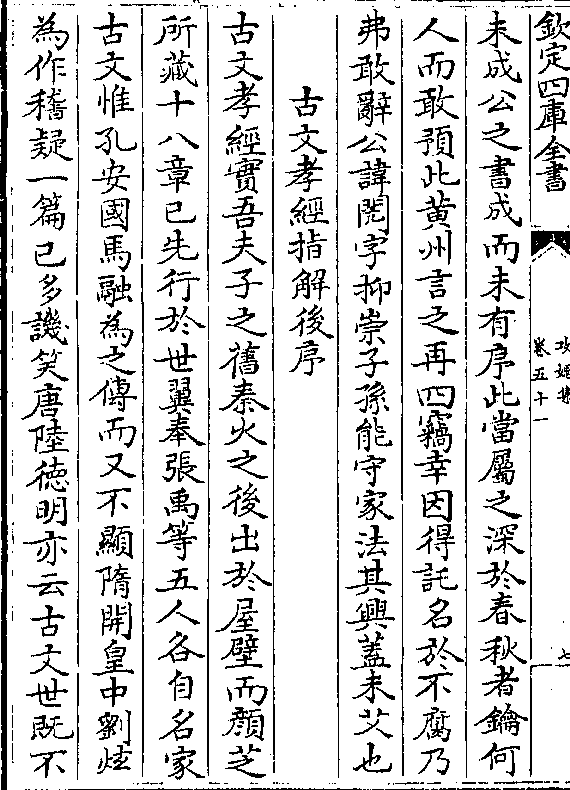 欽定四庫全書
攻媿集
卷五十一
七
未成公之書成而未有序此當屬之深於春秋者鑰何
人而敢預此黄州言之再四竊幸因得託名於不腐乃
弗敢辭公諱閱字抑崇子孫能守家法其興蓋未艾也
古文孝經指解後序
古文孝經實吾夫子之舊秦火之後出於屋壁而顔芝
所藏十八章已先行於世翼奉張禹等五人各自名家
古文惟孔安國馬融為之傳而又不顯隋開皇中劉炫
為作稽疑一篇已多譏笑唐陸徳明亦云古文世既不